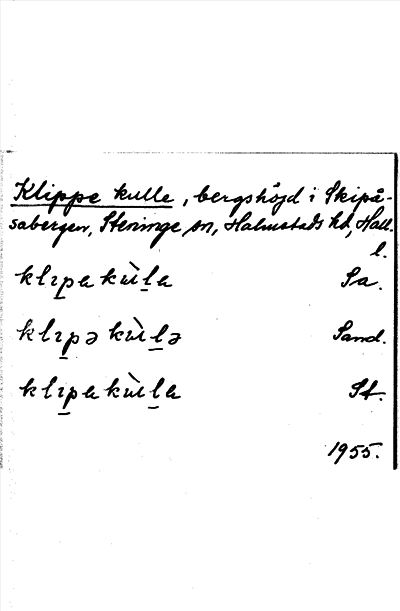 Klippe kulle, bergshöjd i Skipå-
sabergen, Steninge sn, Halmstads hd, Hall.
l.
klıp̲a kùl̲a Sa.
klıp̲ə kùl̲ə Sand.
klıp̲a kùl̲a St.
1955.